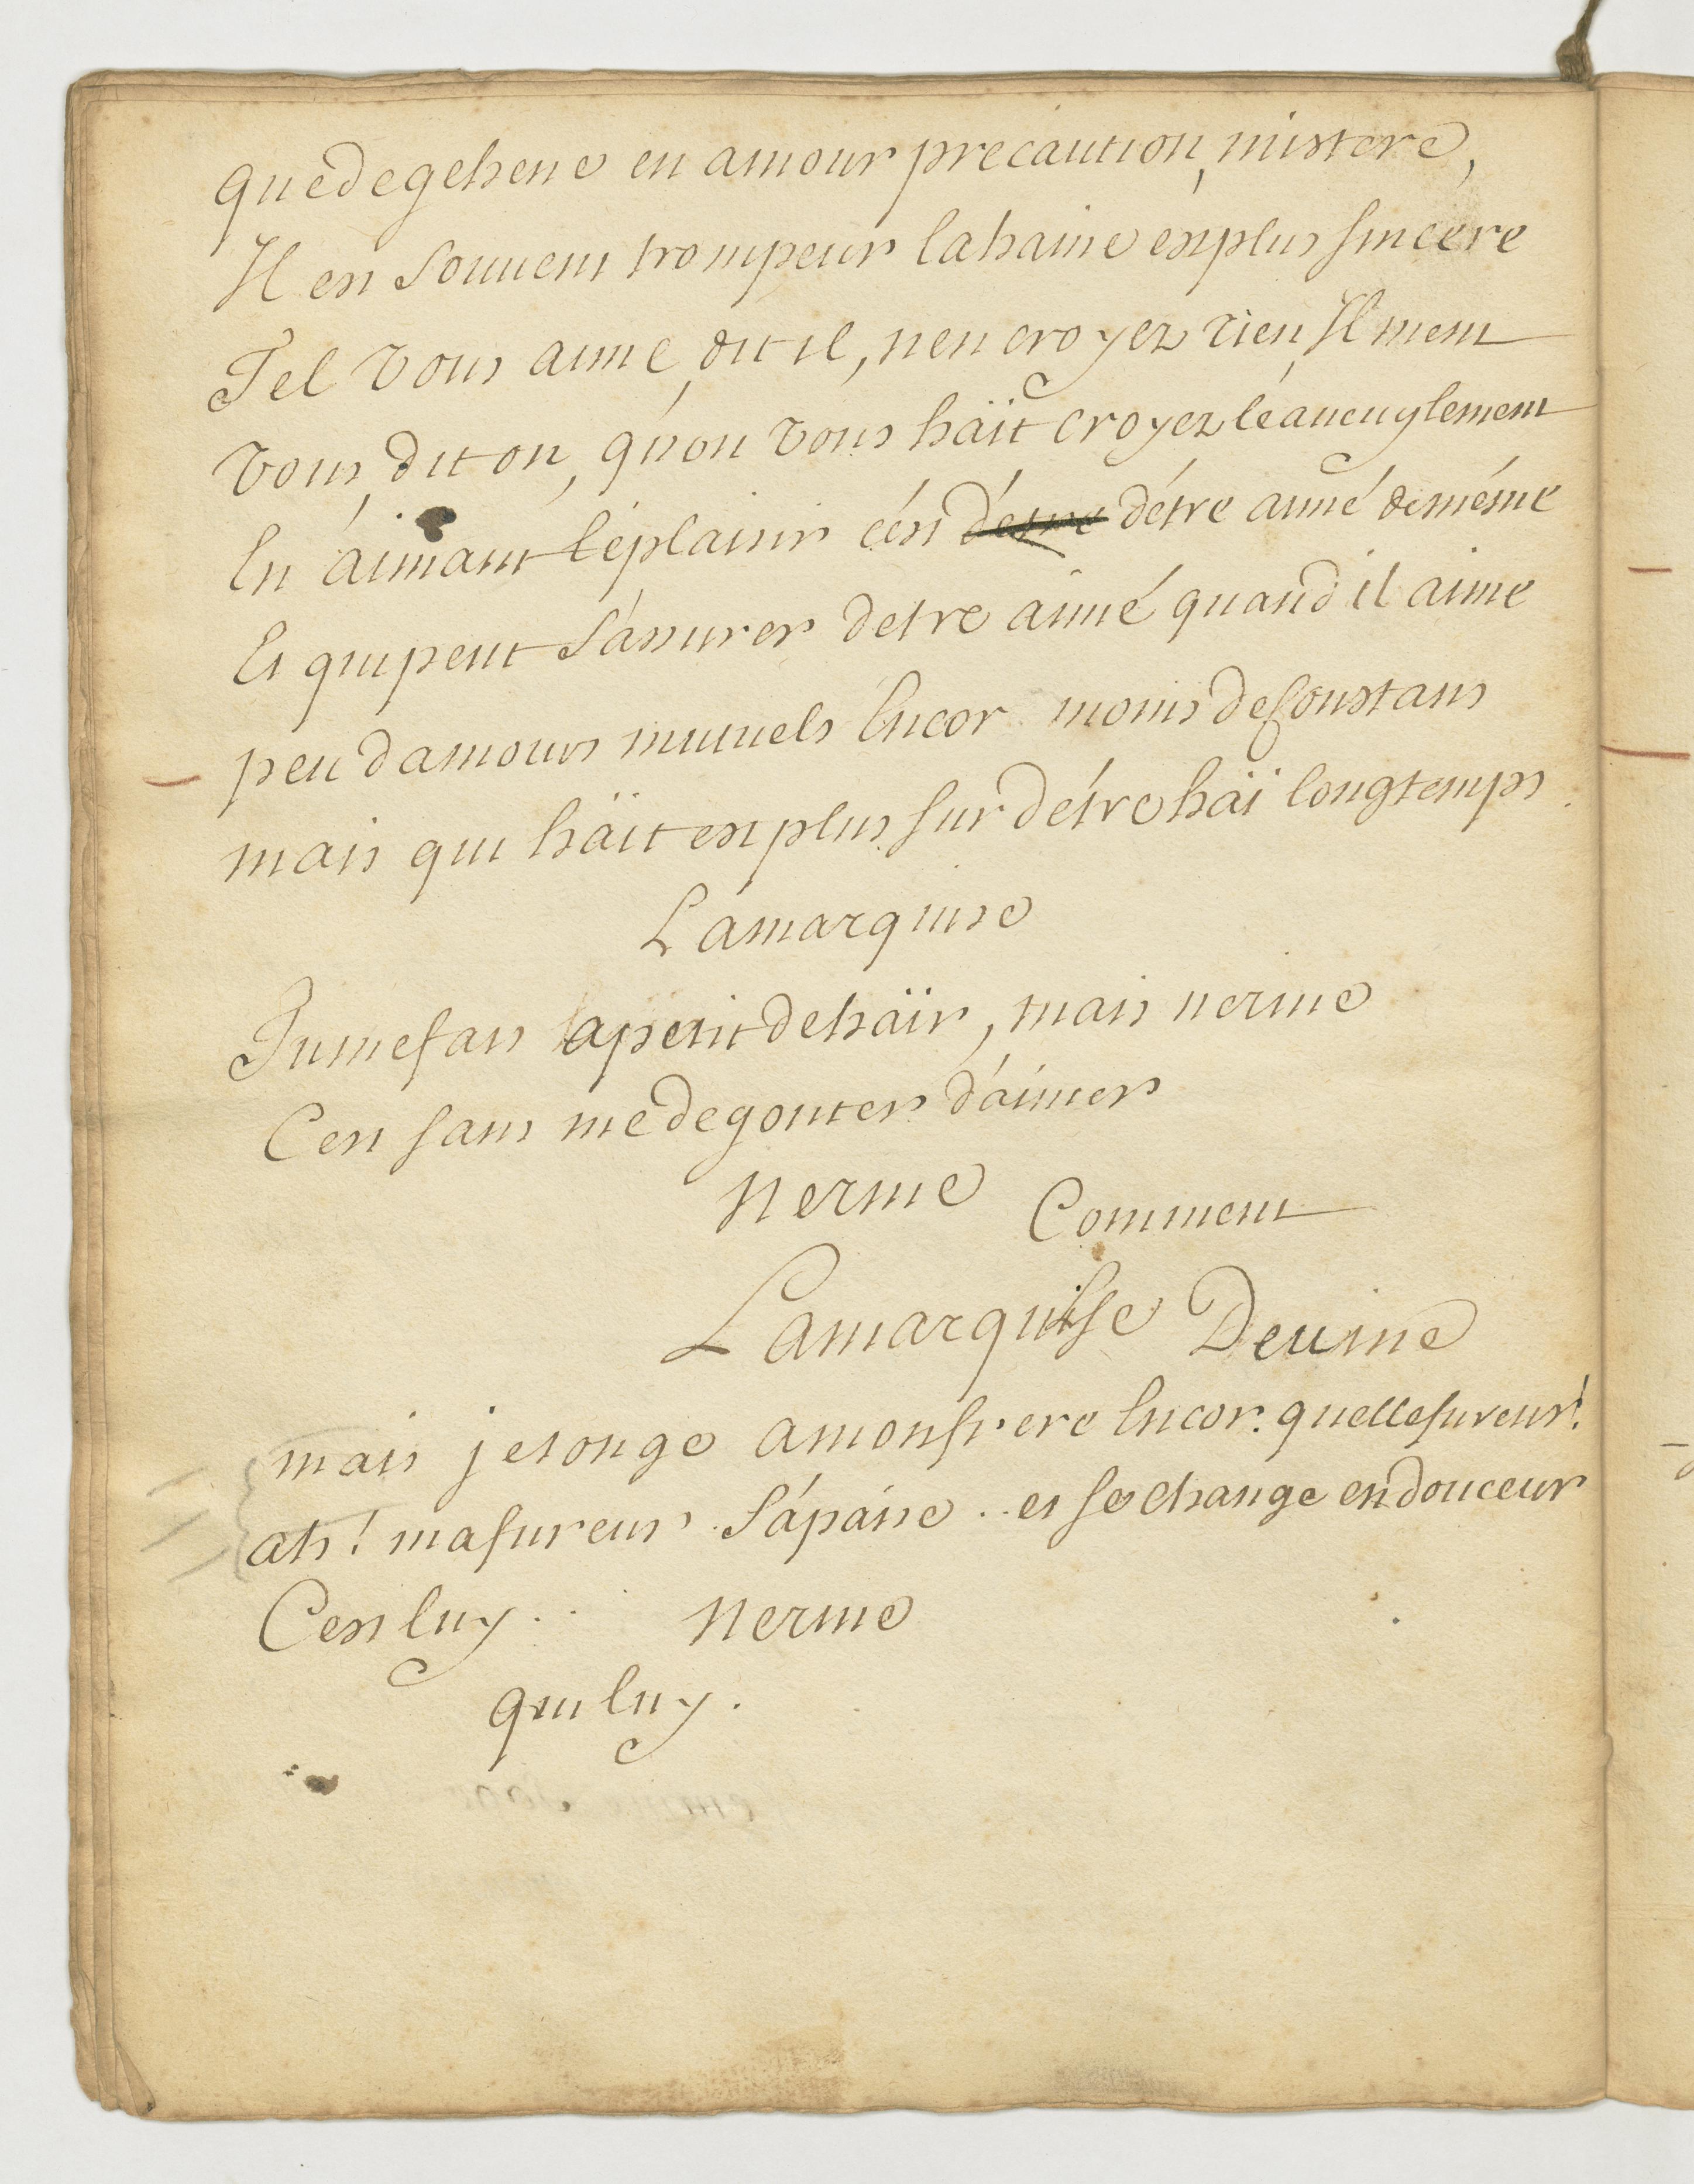 que de gehene en amour precaution, mistere,
Il est souuent trompeur la haine est plus sincere
Tel vous aime, dit il, n'en croyez rien, Il ment
vous, dit on, qu'on vous häit croyez lé aueuglement
En áimant lé plaisir cést d'étre d'étre aimé de méme
Et qui peut s'assurer detre aimé quand il aime
peu d'amours mutuels Encor moins de constans
mais qui häit est plus sur d'étre häi longtemps.
La marquise
Tu me fais apetit de häir, mais nerine
C'est sans me degouter d'aimer
Nerine Comment
La marquise Deuine
mais je songe a mon frere Encor. quelle fureur!
ah! ma fureur s'ápaise .. et se change en douceur
C'est luy .. Nerine
qui luy.